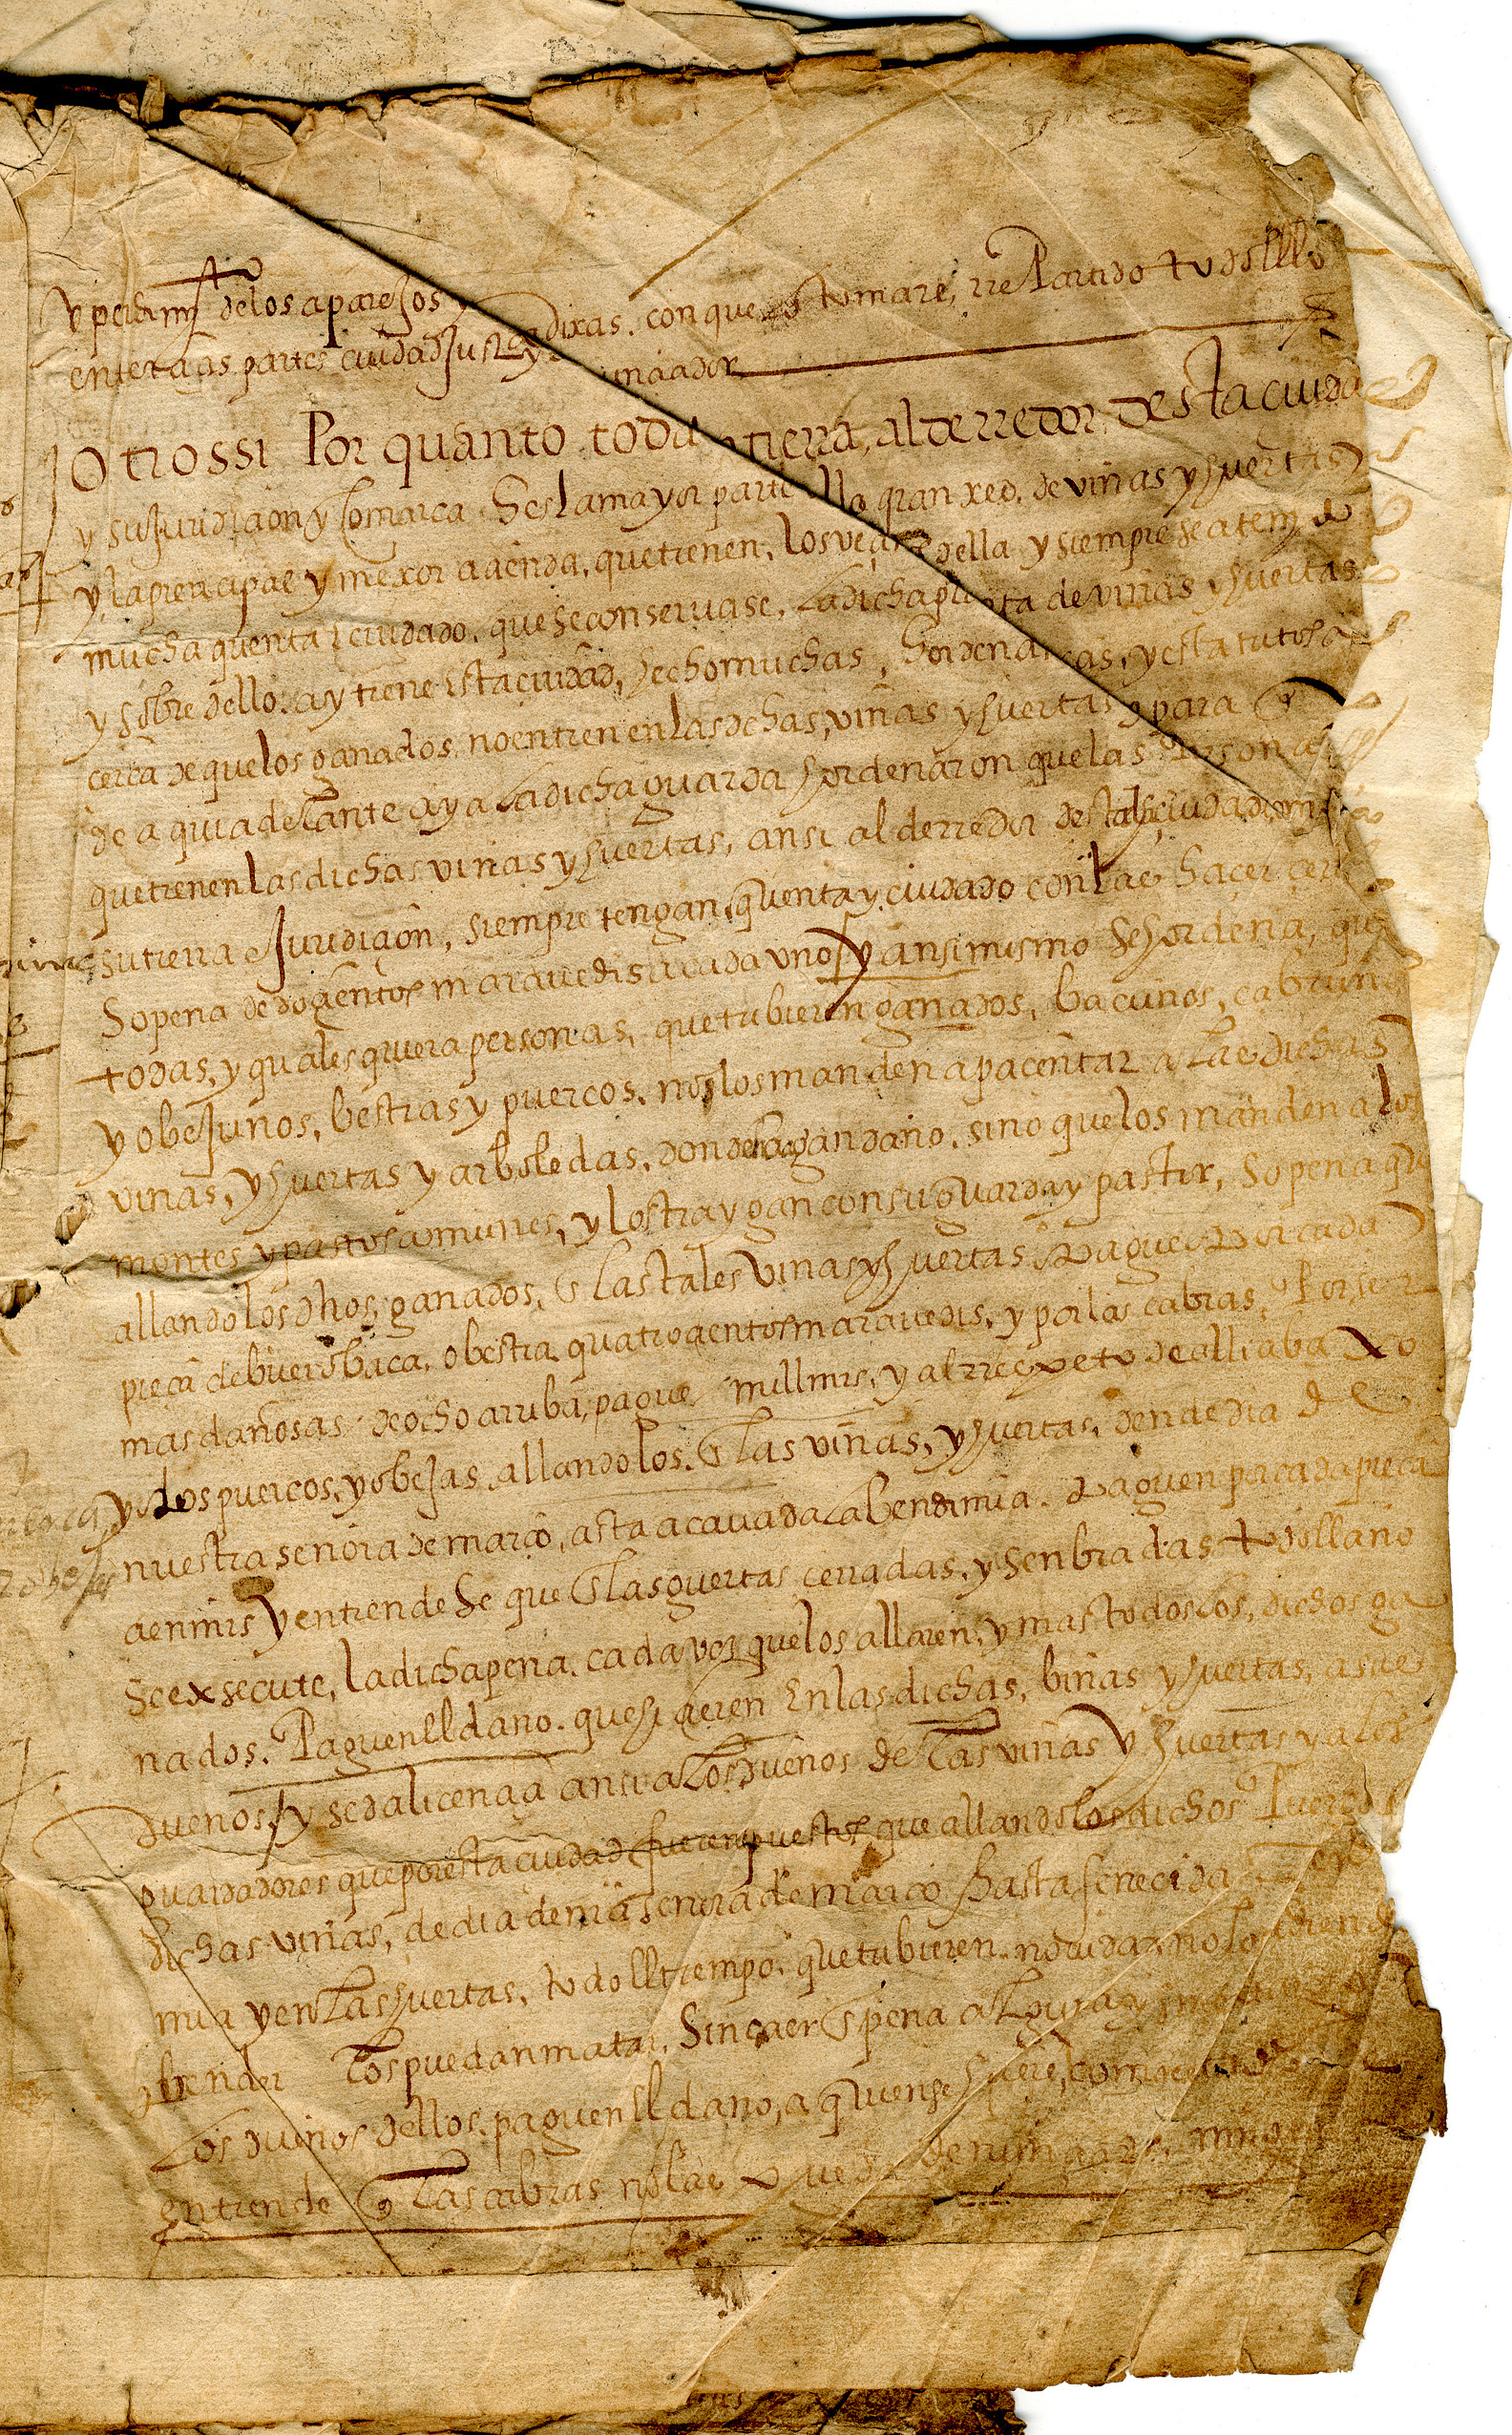 y perdimiº de los aparejos y dixas. con que se tomare, rrepartido todo lllo
en terçias partes ciudad Juez y nunciador
Otrossi Por quanto toda tierra, al derredor desta ciuda
y su Juridiçion y Comarca. Hes la mayor parte della gran xed. de viñas y huertas
y la prencipal y mexor açienda, que tienen, los veçinos della y siempre se a tenido
mucha quenta e ciudado, que se conseruase, la dicha planta de viñas y huertas
y sobre dello. a y tiene esta ciudad, hecho muchas, hordenanças, y estatutos a
cerca de que los ganados. no entren en las dichas, viñas y huertas y para q
de aqui adelante aya la dicha guarda hordenaron que las Personas
que tienen las dichas viñas y huertas, ansi al derredor desta ciudad, como
su tierra e Juridiçion, siempre tengan, quenta y ciudado con las hacer cerrar
So pena de doçientos maravedis a cada uno / y ansimismo se hordena, que
todas, y quales quiera personas, que tubieren ganados, bacunos, cabrunos
y obejunos, bestias y puercos, no los manden apacentar a las dichas
viñas, y huertas y arboledas, donde hagan daño, sino que los manden a los
montes y pastos comunes, y los traygan con su guarda y pastor, So pena que
allando los dhos, ganados, En las tales viñas y huertas Pague Por cada
pieça de buei o baca, o bestia quatroçentos maravedis, y por las cabras, Por ser
mas dañosas de ocho arriba, pague mill mrs, y al rrespeto de alli abaxo
y los puercos, y obejas. allandolos. En las viñas, y huertas, dende dia de
nuestra señora de março, asta acauada la bendimia. Paguen por cada pieça
çien mrs y entiendese que En las guertas cerradas, y senbradas todo ll año
se exsecute, la dicha pena. cada vez que los allaren, y mas todos los, dichos ga
nados. Paguen ll daño. que hiçieren En las dichas, biñas y huertas, a sus
Dueños, / y se da licençia ansi a los dueños de las viñas y huertas y a los
guardadores que por esta ciudad fueren puestos que allando los dichos Puercos
dichas viñas, de dia de nra Señora de março hasta fenecida
mia y en las huertas, todo ll tiempo. que tubieren no lo
prender los puedan matar. Sin caer En pena alguna y
Los dueños dellos. paguen ll daño, a quien se hiciere, como
Entiende q las cabras no las pueda